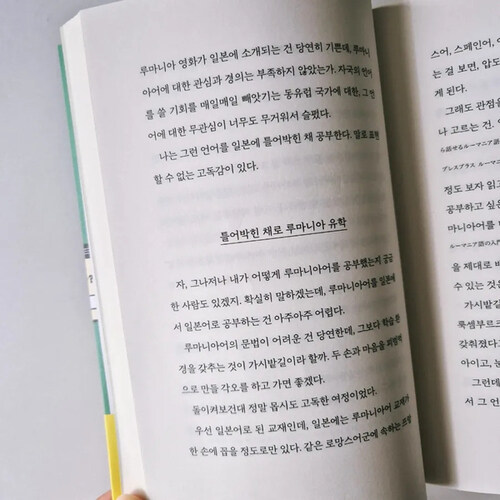 루마니아 영화가 일본에 소개되는 건 당연히 기쁜데, 루마니
아어에 대한 관심과 경의는 부족하지 않았는가. 자국의 언어
를 쓸 기회를 매일매일 빼앗기는 동유럽 국가에 대한, 그 언
어에 대한 무관심이 너무도 무거워서 슬펐다.
나는 그런 언어를 일본에 틀어박힌 채 공부한다. 말로 표현
할 수 없는 고독감이 있다.
틀어박힌 채로 루마니아 유학
자, 그나저나 내가 어떻게 루마니아어를 공부했는지 궁금
한 사람도 있겠지. 확실히 말하겠는데, 루마니아어를 일본에
서 일본어로 공부하는 건 아주아주 어렵다.
루마니아어의 문법이 어려운 건 당연한데, 그보다 학습 환
경을 갖추는 것이 가시밭길이라 할까. 두 손과 마음을 피범벅
으로 만들 각오를 하고 가면 좋겠다.
돌이켜보건대 정말 몹시도 고독한 여정이었다.
우선 일본어로 된 교재인데, 일본에는 루마니아어 교재가
한 손에 꼽을 정도로만 있다. 같은 로망스어군에 속하는 프랑
스어, 스페인어,
는 걸 보면, 압도
게 된다.
그래도 관점
나 고르는 건.
ら話せるルーマニア語
プレスプラス ルーマニア語
정도 보자
공부하고 싶은
마니아어를
ルーマニア語の入門
을 제대로
있는 것은
가시밭길
룩셈부르크
갖춰졌다
아이고,
그런데
서 그 언